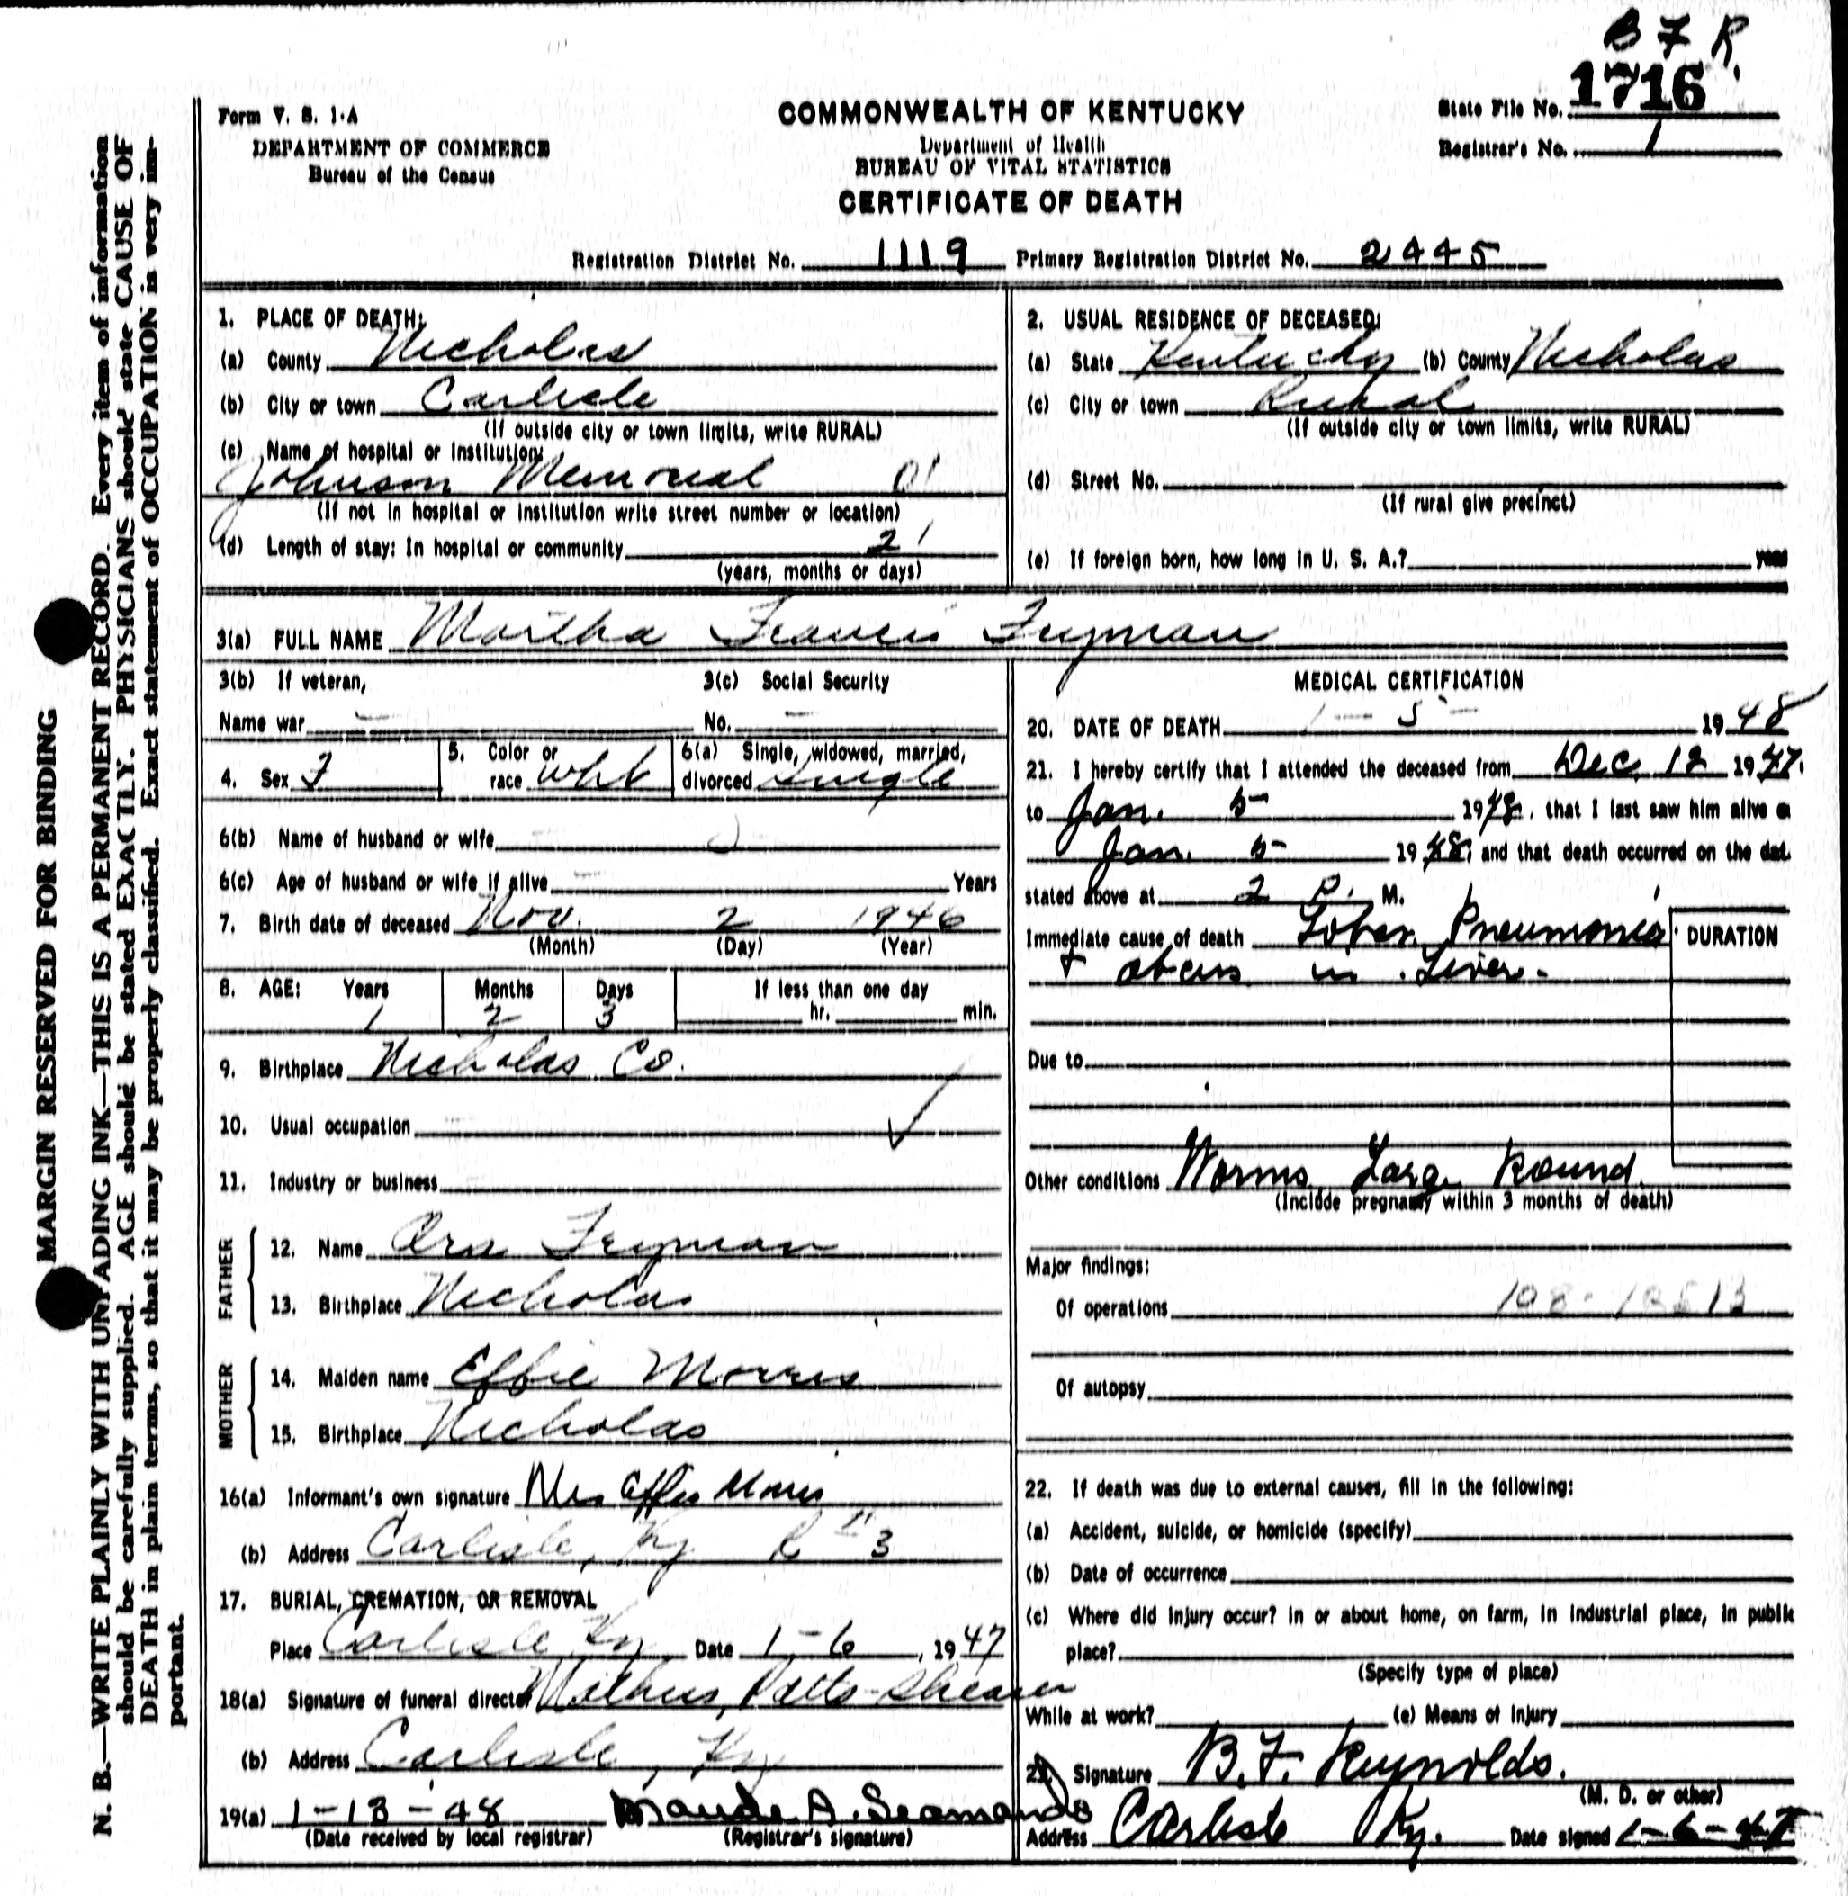 B F R
Form V. S. 1-A
DEPARTMENT OF COMMERCE
Bureau of the Census
COMMONWEALTH OF KENTUCKY
Department of Health
BUREAU OF VITAL STATISTICS
CERTIFICATE OF DEATH
State File No. 1716
Registrar's No. 1
Registration District No. 1119 Primary Registration District No. 2445
MARGIN RESERVED FOR BINDING
N. B.—WRITE PLAINLY WITH UNFADING INK—THIS IS A PERMANENT RECORD. Every item of information
should be carefully supplied. AGE should be stated EXACTLY. PHYSICIANS should state CAUSE OF
DEATH in plain terms, so that it may be properly classified. Exact statement of OCCUPATION is very im-
portant.
1. PLACE OF DEATH:
(a) County Nicholas
(b) City or town Carlisle
(If outside city or town limits, write RURAL)
(c) Name of hospital or institution:
Johnson Memorial
(If not in hospital or institution write street number or location)
(d) Length of stay: In hospital or community 2
(years, months or days)
2. USUAL RESIDENCE OF DECEASED:
(a) State Kentucky (b) County Nicholas
(c) City or town Rural
(If outside city or town limits, write RURAL)
(d) Street No.
(If rural give precinct)
(e) If foreign born, how long in U. S. A.? years
3(a) FULL NAME Martha Francis Fryman
3(b) If veteran,
Name war –
3(c) Social Security
No. –
4. Sex F
5. Color or
race Wht
6(a) Single, widowed, married,
divorced Single
6(b) Name of husband or wife
6(c) Age of husband or wife if alive Years
7. Birth date of deceased Nov. 2 1946
(Month) (Day) (Year)
8. AGE: Years Months Days If less than one day
1 2 3 hr. min.
9. Birthplace Nicholas Co.
10. Usual occupation
11. Industry or business
FATHER
12. Name Ora Fryman
13. Birthplace Nicholas
MOTHER
14. Maiden name Effie Morris
15. Birthplace Nicholas
16(a) Informant's own signature Mrs Effie Morris
(b) Address Carlisle, Ky R #3
17. BURIAL, CREMATION, OR REMOVAL
Place Carlisle Ky Date 1-6, 1947
18(a) Signature of funeral director Mathers, Potts-Shearer
(b) Address Carlisle, Ky
19(a) 1-13-48 Maude A. Seamands
(Date received by local registrar) (Registrar's signature)
MEDICAL CERTIFICATION
20. DATE OF DEATH 1 – 5 – 1948
21. I hereby certify that I attended the deceased from Dec 12 1947,
to Jan. 5 1948, that I last saw him alive o
Jan. 5 1948, and that death occurred on the dat
stated above at 2 P. M.
Immediate cause of death Lobar Pneumonia
+ abcess in Liver.
DURATION
Due to
Other conditions Worms Large Round
(Include pregnancy within 3 months of death)
Major findings:
Of operations
Of autopsy
22. If death was due to external causes, fill in the following:
(a) Accident, suicide, or homicide (specify)
(b) Date of occurrence
(c) Where did injury occur? in or about home, on farm, in industrial place, in public
place?
(Specify type of place)
While at work? (e) Means of Injury
23. Signature B.F. Reynolds.
(M. D. or other)
Address Carlisle Ky. Date signed 1-6-48